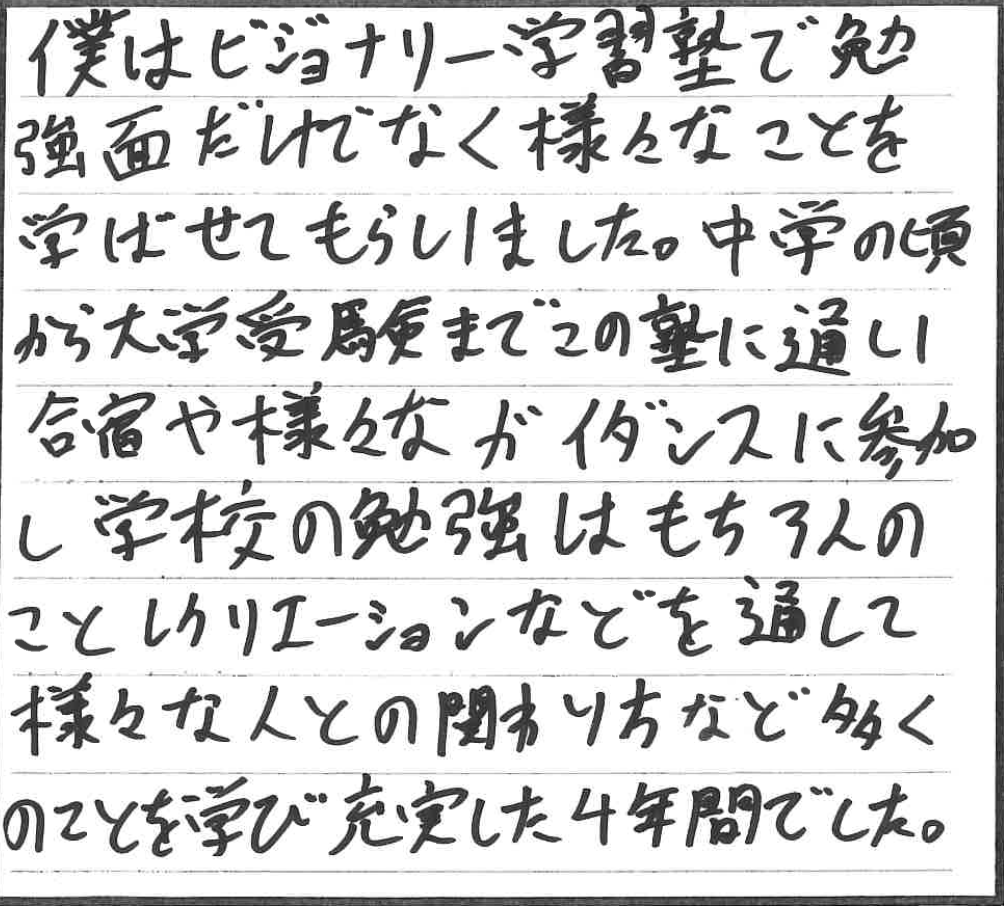 僕はビジョナリー学習塾で勉
強面だけでなく様々なことを
学ばせてもらいました。中学の頃
から大学受験までこの塾に通い
合宿や様々なガイダンスに参加
し学校の勉強はもちろんの
ことレクリエーションなどを通して
様々な人との関わり方など多く
のことを学び充実した4年間でした。